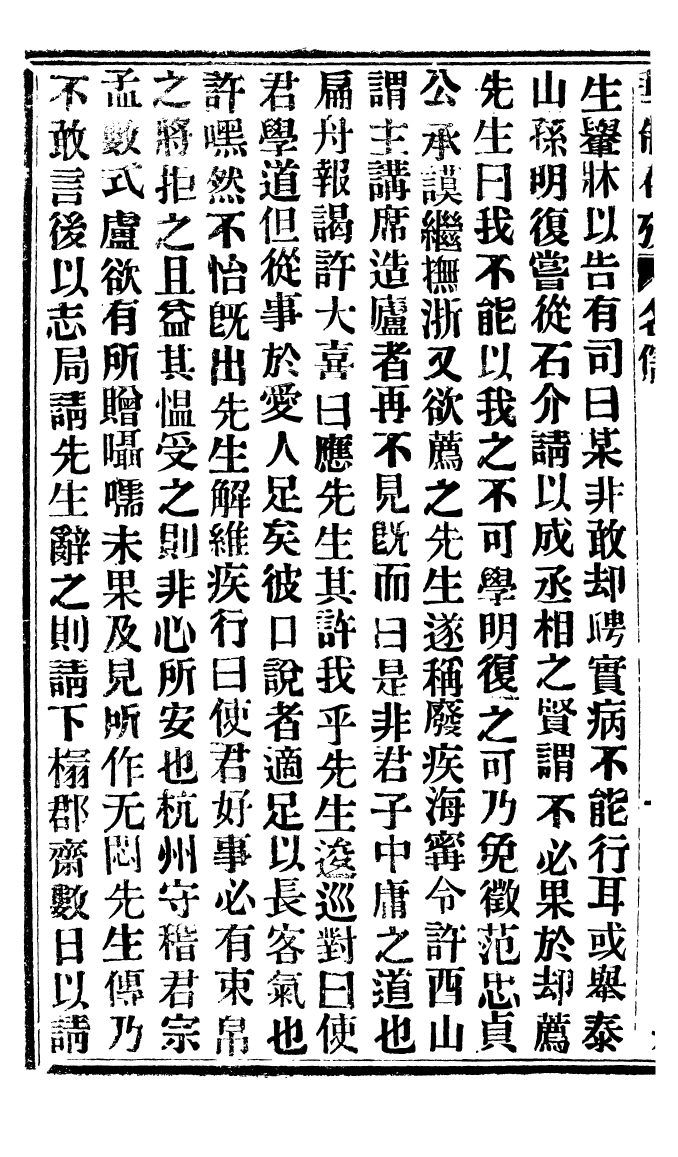 生轝牀以告有司曰某非敢却聘實病不能行耳或舉泰
山孫明復嘗從石介請以成丞相之賢謂不必果於却薦
先生曰我不能以我之不可學明復之可乃免徵范忠貞
公承謨繼撫浙又欲薦之先生遂稱廢疾海寗令許酉山
謂主講席造廬者再不見旣而曰是非君子中庸之道也
扁舟報謁許大喜曰應先生其許我乎先生逡巡對曰使
君學道但從事於愛人足矣彼口說者適足以長客氣也
許嘿然不怡旣出先生解維疾行曰使君好事必有束帛
之將拒之且益其慍受之則非心所安也杭州守稽君宗
孟數式廬欲有所贈囁嚅未果及見所作无悶先生傳乃
不敢言後以志局請先生辭之則請下榻郡齋數日以請